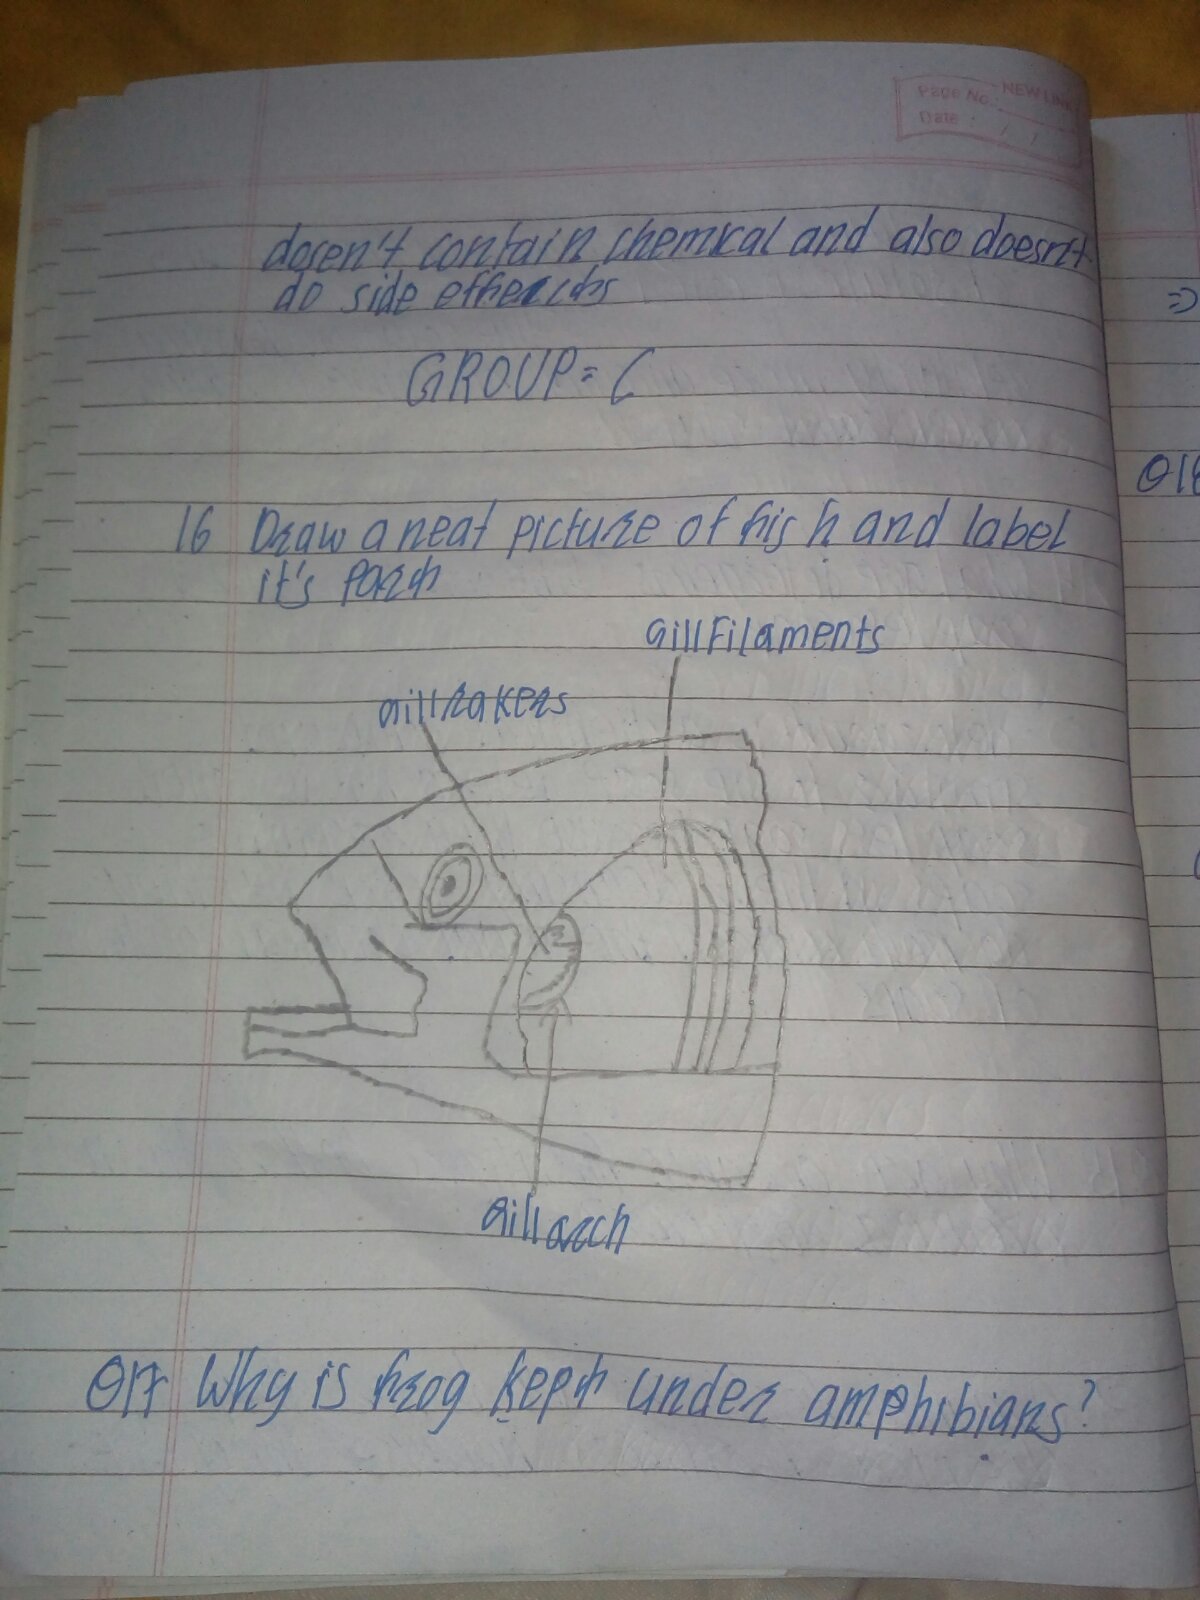 Page No. NEW LINK
Date : / /
dosen't contain chemical and also doesn't
do side
GROUP = C
16 Draw a neat picture of fish and label
it's part
Gill Filaments
gill rakers
Gill arch
Q17 Why is frog kept under amphibians?